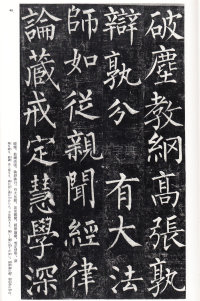 破塵教綱高張孰
辯孰分 有大法
師如從親聞經律
論藏戒定慧學深